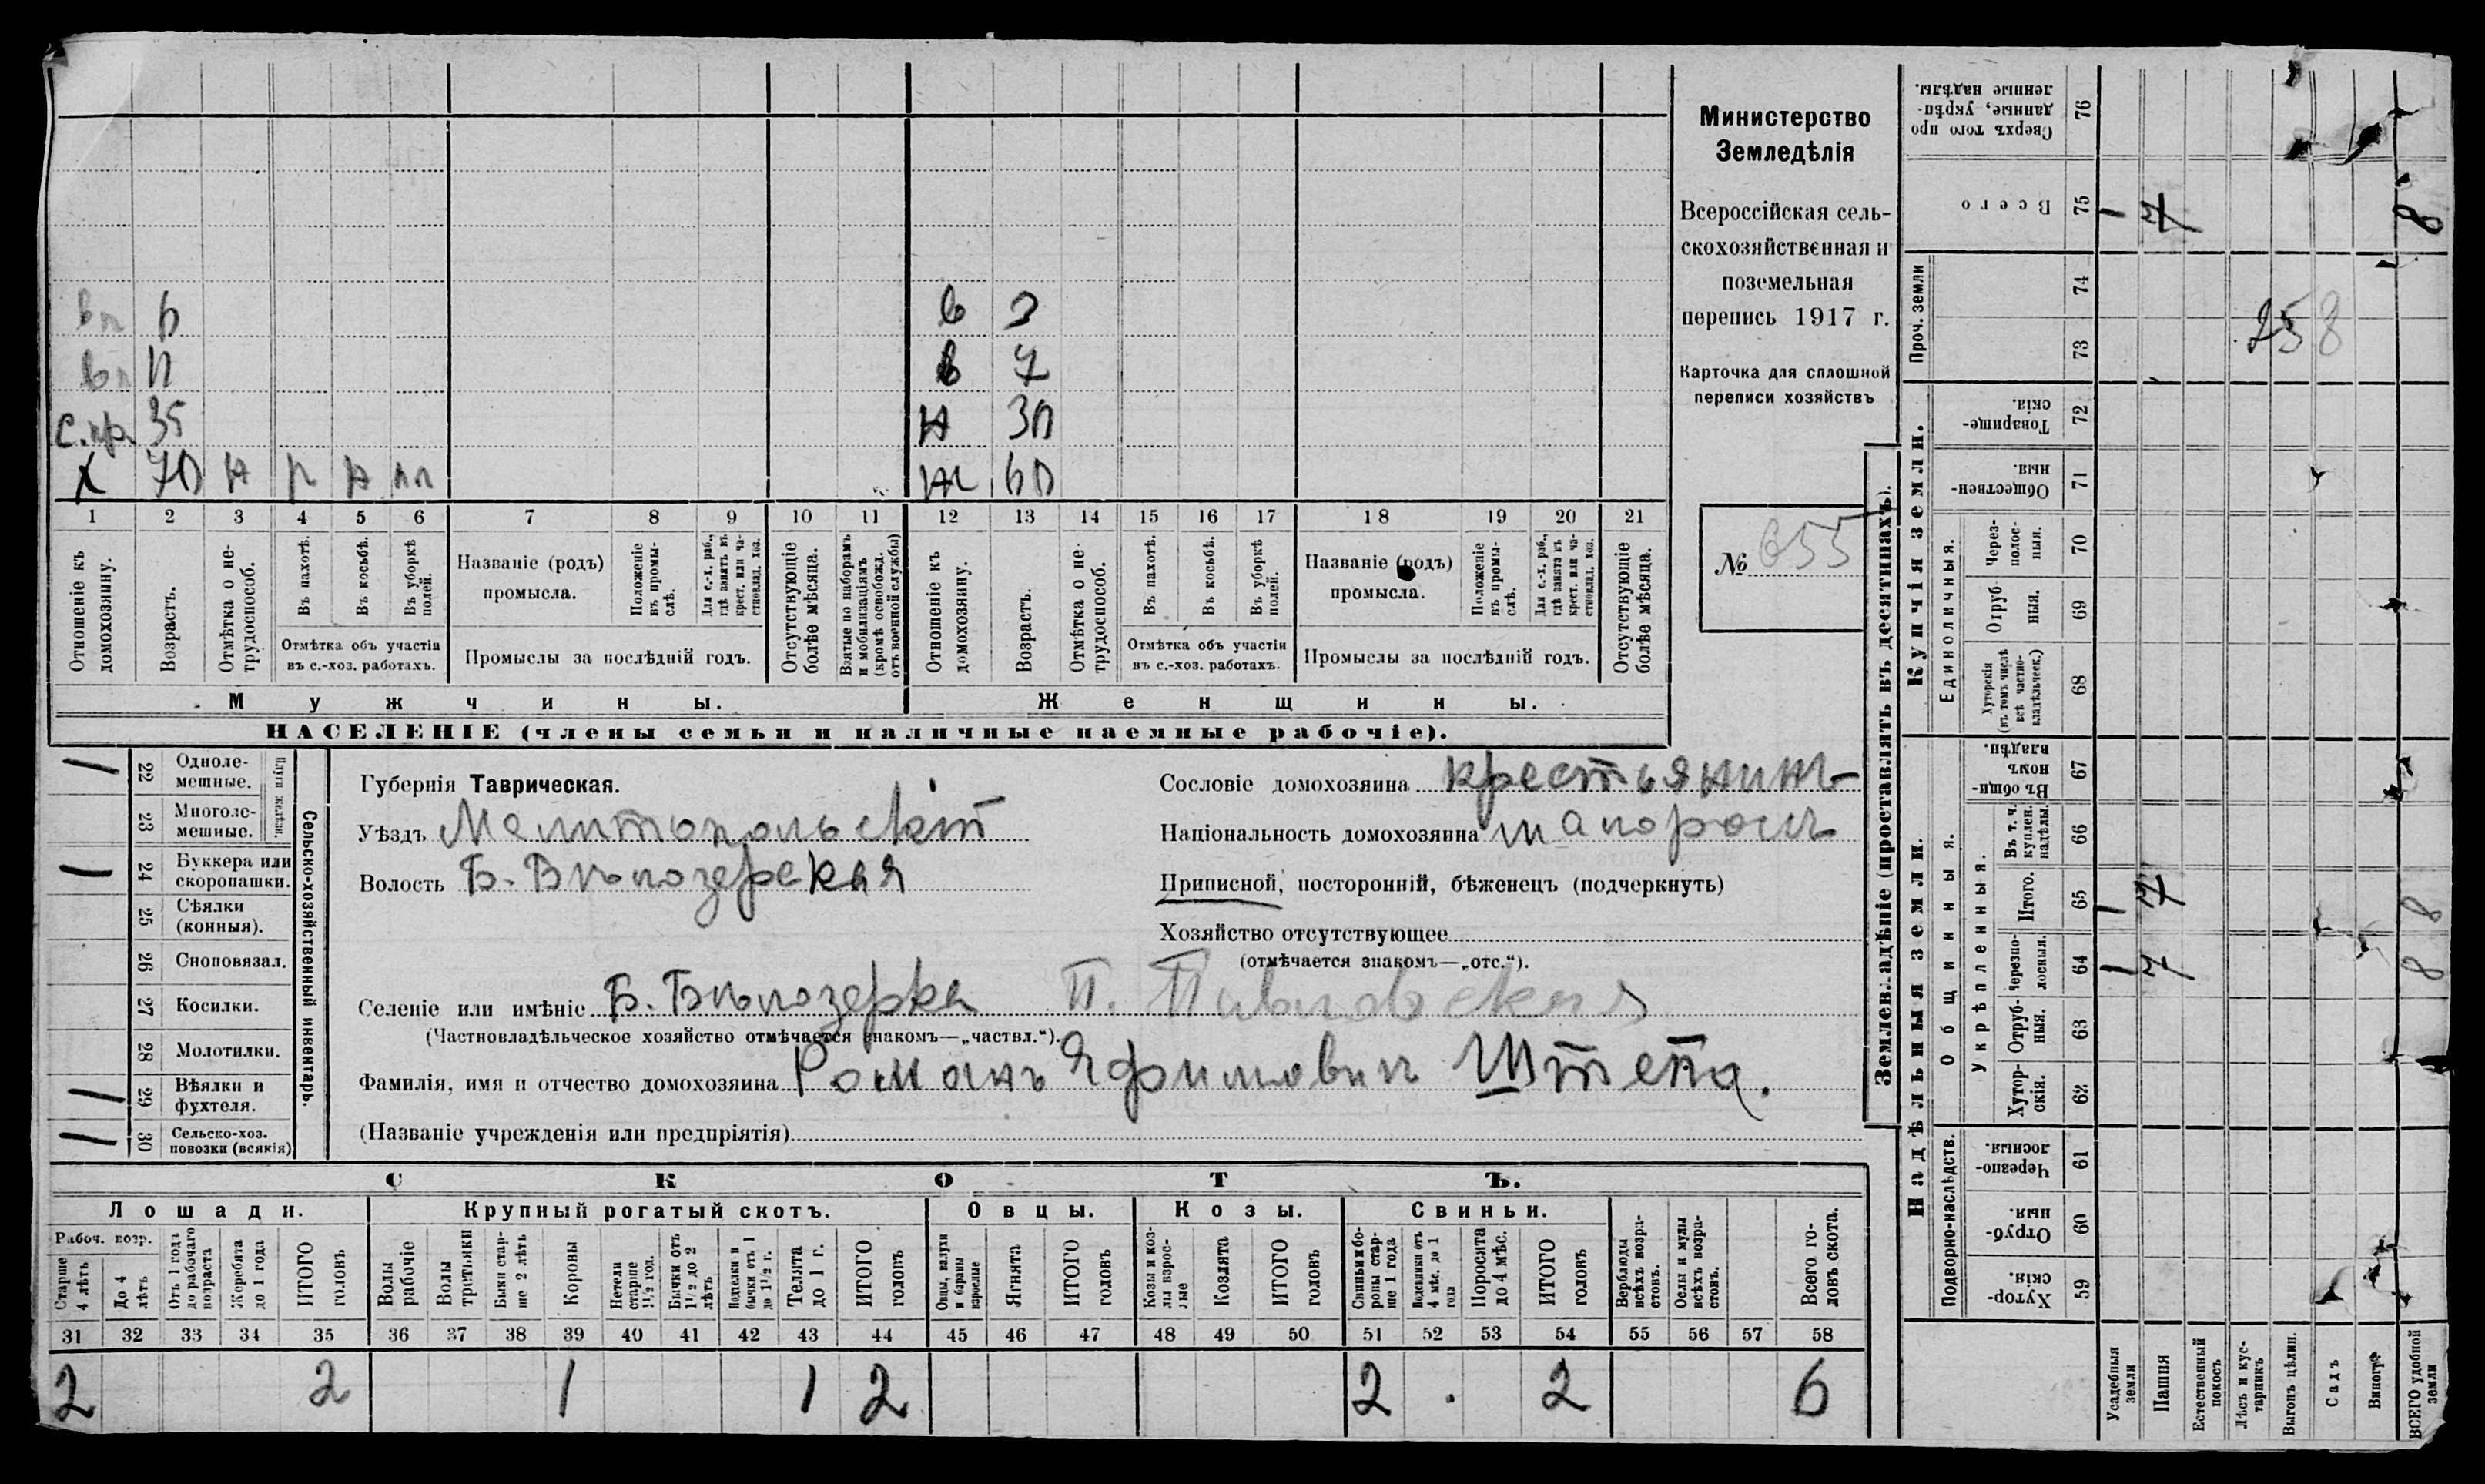 Министерство
Земледѣлія
Всероссійская сель-
скохозяйственная и
поземельная
перепись 1917 г.
Карточка для сплошной
переписи хозяйствъ
№ 655
вн 6 в 3
вн 11 в 7
с.пр. 35 н 30
х 70 н р н пп ж 60
1 2 3 4 5 6 7 8 9 10 11 12 13 14 15 16 17 18 19 20 21
Отношеніе къ домохозяину.
Возрастъ.
Отмѣтка о не-трудоспособ.
Въ пахотѣ.
Въ косьбѣ.
Въ уборкѣ полей.
Отмѣтка объ участіи
въ с.-хоз. работахъ.
Названіе (родъ)
промысла.
Положеніе въ промы-слѣ.
Для с.-х. раб., гдѣ занятъ въ крест. или ча-стновлад. хоз.
Промыслы за послѣдній годъ.
Отсутствующіе болѣе мѣсяца.
Взятые по наборамъ и мобилизаціямъ (кромѣ освобожд. отъ военной службы)
Отношеніе къ домохозяину.
Возрастъ.
Отмѣтка о не-трудоспособ.
Въ пахотѣ.
Въ косьбѣ.
Въ уборкѣ полей.
Отмѣтка объ участіи
въ с.-хоз. работахъ.
Названіе (родъ)
промысла.
Положеніе въ промы-слѣ.
Для с.-х. раб., гдѣ занята въ крест. или ча-стновлад. хоз.
Промыслы за послѣдній годъ.
Отсутствующіе болѣе мѣсяца.
Мужчины. Женщины.
НАСЕЛЕНІЕ (члены семьи и наличные наемные рабочіе).
Сельско-хозяйственный инвентарь.
Плуги желѣзн.
1 22 Одноле-мешные.
23 Многоле-мешные.
1 24 Буккера или скоропашки.
25 Сѣялки (конныя).
26 Сноповязал.
27 Косилки.
28 Молотилки.
1 29 Вѣялки и фухтеля.
1 30 Сельско-хоз. повозки (всякія)
Губернія Таврическая.
Уѣздъ Мелитопольскій
Волость Б. Бѣлозерская
Селеніе или имѣніе Б. Бѣлозерка П. Павловская
(Частновладѣльческое хозяйство отмѣчается знакомъ—„частвл.“).
Фамилія, имя и отчество домохозяина Романъ Яфимович Штепа.
(Названіе учрежденія или предпріятія)
Сословіе домохозяина крестьянинъ
Національность домохозяина малороссъ
Приписной, посторонній, бѣженецъ (подчеркнуть)
Хозяйство отсутствующее
(отмѣчается знакомъ—„отс.“).
СКОТЪ.
Лошади. Крупный рогатый скотъ. Овцы. Козы. Свиньи.
Рабоч. возр.
Старше 4 лѣтъ
До 4 лѣтъ
Отъ 1 года до рабочаго возраста
Жеребята до 1 года
ИТОГО головъ
Волы рабочіе
Волы третьяки
Быки стар-ше 2 лѣтъ
Коровы
Нетели старше 1½ год.
Бычки отъ 1½ до 2 лѣтъ
Водтелки и бычки отъ 1 до 1½ г.
Телята до 1 г.
ИТОГО головъ
Овцы, валухи и бараны взрослые
Ягнята
ИТОГО головъ
Козы и коз-лы взрос-лые
Козлята
ИТОГО головъ
Свиньи и бо-ровы стар-ше 1 года
Подсвинки отъ 4 мѣс. до 1 года
Поросята до 4 мѣс.
ИТОГО головъ
Верблюды всѣхъ возра-стовъ.
Ослы и мулы всѣхъ возра-стовъ.
Всего го-ловъ скота.
31 32 33 34 35 36 37 38 39 40 41 42 43 44 45 46 47 48 49 50 51 52 53 54 55 56 57 58
2 2 1 1 2 2 . 2 6
Землевладѣніе (проставлять въ десятинахъ).
Купчія земли.
Надѣльныя земли.
Сверхъ того про-данные, укрѣп-ленные надѣлы. 76
Всего 75 1 7 8
Проч. земли 74 73
258
Товарище-скія. 72
Обществен-ныя. 71
Единоличныя.
Через-полос-ныя. 70
Отруб-ныя. 69
Хуторскія (въ томъ числѣ всѣ частно-владѣльческ.) 68
Общинныя.
Въ общин-номъ владѣн. 67
Укрѣпленныя.
Въ т. ч. куплен. надѣлы. 66
Итого. 65 1 7 8
Черезпо-лосныя. 64 1 7 8
Отруб-ныя. 63
Хутор-скія. 62
Подворно-наслѣдств.
Черезпо-лосныя. 61
Отруб-ныя. 60
Хутор-скія. 59
Усадебныя земли
Пашня
Естественный покосъ
Лѣсъ и кус-тарникъ
Выгонъ цѣлин.
Садъ
Виногр.
ВСЕГО удобной земли